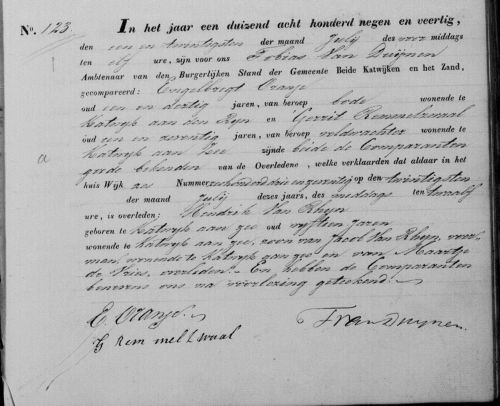 No. 123.
In het jaar een duizend acht honderd negen en veertig,
den een en twintigsten der maand Julij des voor middags
ten elf ure, zijn voor ons Tobias Van Duijnen
Ambtenaar van den Burgerlijken Stand der Gemeente Beide Katwijken en het Zand,
gecompareerd: Engelbregt Oranje
oud een en dertig jaren, van beroep bode wonende te
Katwyk aan den Ryn en Gerrit Remmelzwaal
oud een en zeventig jaren, van beroep veldwachter wonende te
Katwyk aan Zee zijnde beide de Comparanten
goede bekenden van de Overledene, welke verklaarden dat aldaar in het
a
huis Wijk zee Nummer eenhonderd drie en zeventig op den twintigsten
der maand Julij dezes jaars, des middags ten twaalf
ure, is overleden: Hendrik Van Rhyn
geboren te Katwyk aan zee oud vyftien jaren
wonende te Katwyk aan zee, zoon van Jacob Van Rhyn, voer-
man, wonende te Katwyk aan zee en van Maartje
de Vries, overleden. En hebben de Comparanten
benevens ons na voorlezing getekend.
E. Oranje.
G Remmelzwaal
T Van Duijnen.